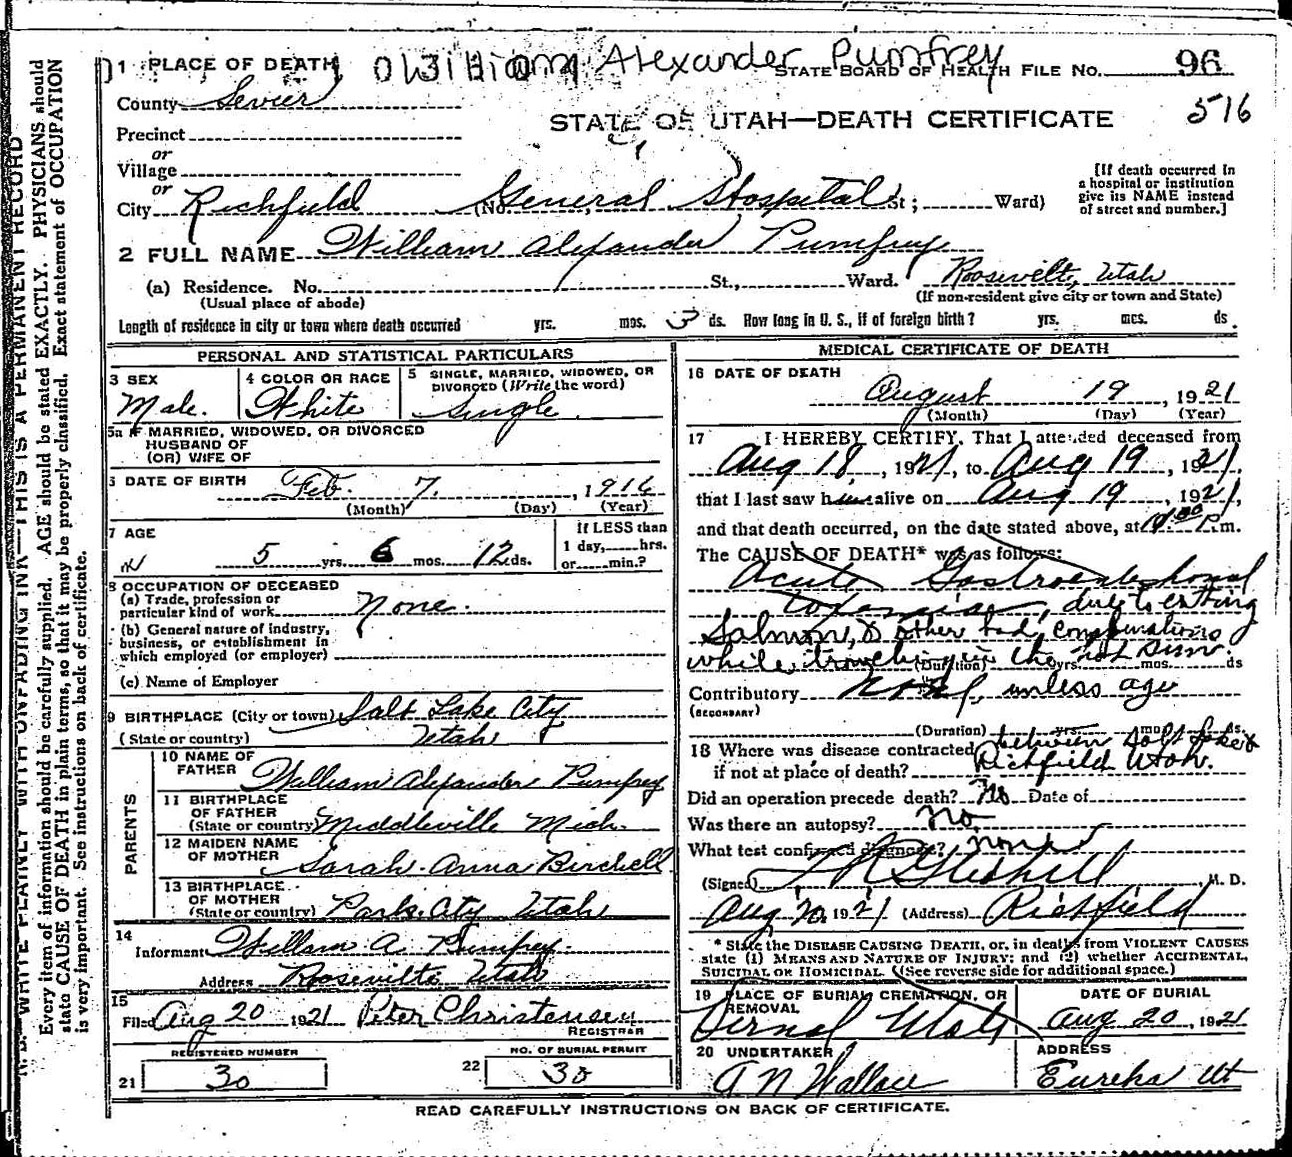 William Alexander Pumfrey
1 PLACE OF DEATH STATE BOARD OF HEALTH FILE NO. 96
County Sevier
516
STATE OF UTAH—DEATH CERTIFICATE
Precinct
or
Village
or
City Richfield (No. General Hospital St; Ward)
[If death occurred in
a hospital or institution
give its NAME instead
of street and number.]
2 FULL NAME William Alexander Pumfrey
(a) Residence. No. St., Ward. Roosevelt, Utah
(Usual place of abode) (If non-resident give city or town and State)
Length of residence in city or town where death occurred yrs. mos. 3 ds. How long in U. S., if of foreign birth? yrs. mos. ds.
PERSONAL AND STATISTICAL PARTICULARS
3 SEX
Male.
4 COLOR OR RACE
White
5 SINGLE, MARRIED, WIDOWED, OR
DIVORCED (Write the word)
Single.
5a IF MARRIED, WIDOWED, OR DIVORCED
HUSBAND OF
(OR) WIFE OF
6 DATE OF BIRTH
Feb. 7. , 1916
(Month) (Day) (Year)
7 AGE
5 yrs. 6 mos. 12 ds.
if LESS than
1 day, hrs.
or min.?
8 OCCUPATION OF DECEASED
(a) Trade, profession or
particular kind of work None.
(b) General nature of industry,
business, or establishment in
which employed (or employer)
(c) Name of Employer
9 BIRTHPLACE (City or town) Salt Lake City
(State or country) Utah
PARENTS
10 NAME OF
FATHER William Alexander Pumfrey
11 BIRTHPLACE
OF FATHER
(State or country) Middleville Mich.
12 MAIDEN NAME
OF MOTHER Sarah Anna Birchell
13 BIRTHPLACE
OF MOTHER
(State or country) Park City Utah
14
Informant William A. Pumfrey.
Address Roosevelt Utah
15
Filed Aug 20 1921 Peter Christensen
REGISTRAR
REGISTERED NUMBER
21 30
NO. OF BURIAL PERMIT
22 30
MEDICAL CERTIFICATE OF DEATH
16 DATE OF DEATH
August 19 , 1921
(Month) (Day) (Year)
17 I HEREBY CERTIFY, That I attended deceased from
Aug 18, , 1921, to Aug 19 , 1921,
that I last saw him alive on Aug 19 , 1921,
and that death occurred, on the date stated above, at P.m.
The CAUSE OF DEATH* was as follows:
Acute Gastrointestional
toxemia, due to eating
Salmon, & other bad combinations
while traveling in the hot sun.
(Duration) yrs. mos. ds
Contributory none, unless age
(SECONDARY)
(Duration) yrs. mos. ds.
18 Where was disease contracted between Salt Lake &
if not at place of death? Richfield Utah.
Did an operation precede death? No Date of
Was there an autopsy? no
What test confirmed diagnosis? none
(Signed) , M. D.
Aug, 20, 1921 (Address) Richfield
* State the DISEASE CAUSING DEATH, or, in deaths from VIOLENT CAUSES
state (1) MEANS AND NATURE OF INJURY; and (2) whether ACCIDENTAL,
SUICIDAL OR HOMICIDAL. (See reverse side for additional space.)
19 PLACE OF BURIAL CREMATION, OR
REMOVAL
Vernal Utah
DATE OF BURIAL
Aug 20 , 1921
20 UNDERTAKER
A N Wallace
ADDRESS
Eureka Ut
READ CAREFULLY INSTRUCTIONS ON BACK OF CERTIFICATE.
N. B.—WRITE PLAINLY WITH UNFADING INK—THIS IS A PERMANENT RECORD
Every item of information should be carefully supplied. AGE should be stated EXACTLY. PHYSICIANS should
state CAUSE OF DEATH in plain terms, so that it may be properly classified. Exact statement of OCCUPATION
is very important. See instructions on back of certificate.